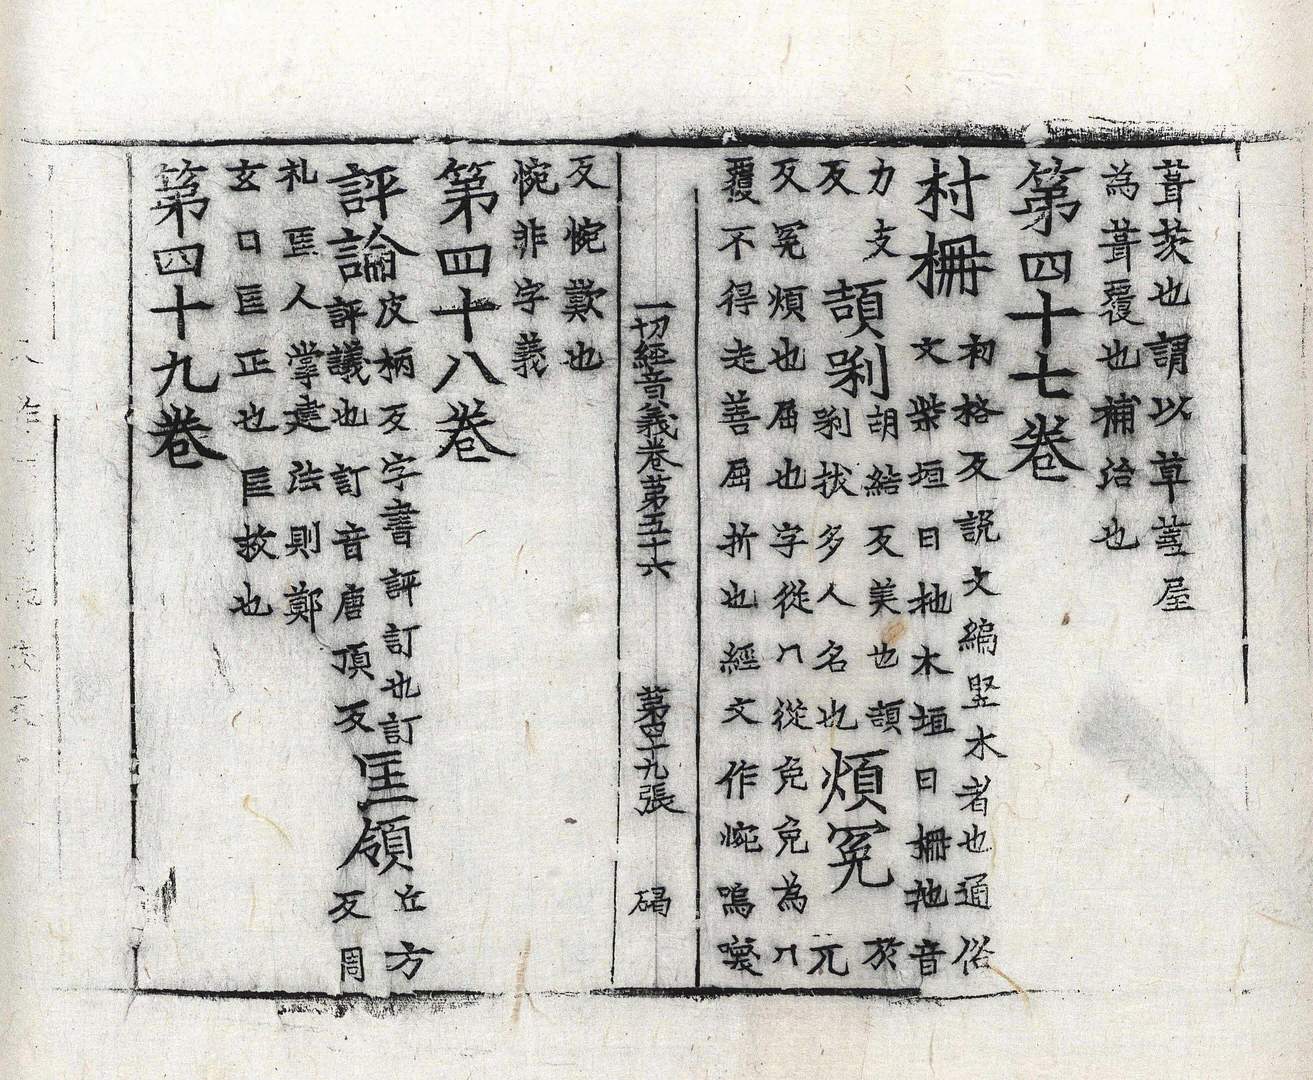 葺茨也謂以草蓋屋
為葺覆也補治也
第四十七卷
村柵
初格反說文編竪木者也通俗
文柴垣曰杝木垣曰柵杝音
力支
反
頡剁
胡結反美也頡
剁拔多人名也
煩冤
於
元
反冤煩也屈也字從冂從兔兔為冂
覆不得走善屈折也經文作惋嗚
一切經音義卷第五十六 第四十九張 碣
反惋歎也
惋非字義
第四十八卷
評論
皮柄反字書評訂也訂
評議也訂音唐頂反
匡領
丘方
反周
礼匡人掌建法則鄭
玄曰匡正也匡救也
第四十九卷